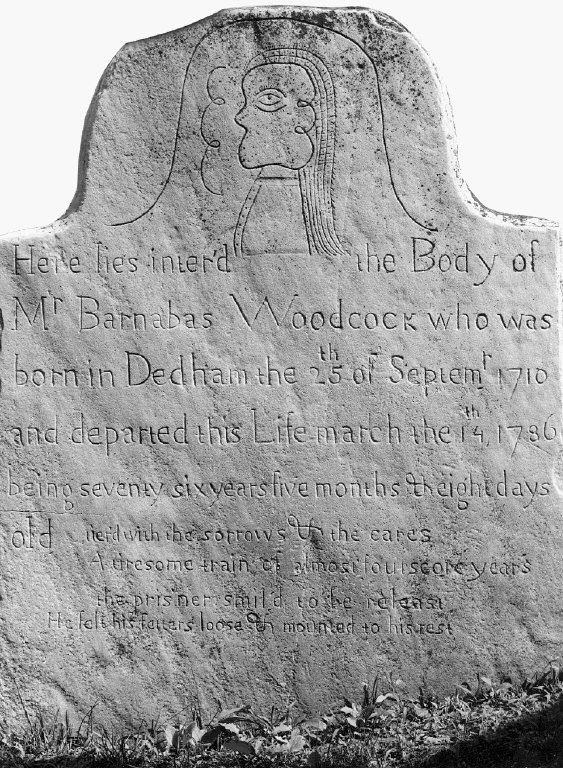 Here lies inter'd the Body of
Mr Barnabas Woodcock who was
born in Dedham the 25th of Septemr 1710
and departed this Life march the 14th, 1786
being seventy six years five months & eight days
old tierd with the sorrows & the cares
A tiresome train of almost fourscore years
the pris'ner smil'd to be releast
He felt his fetters loose & mounted to his rest